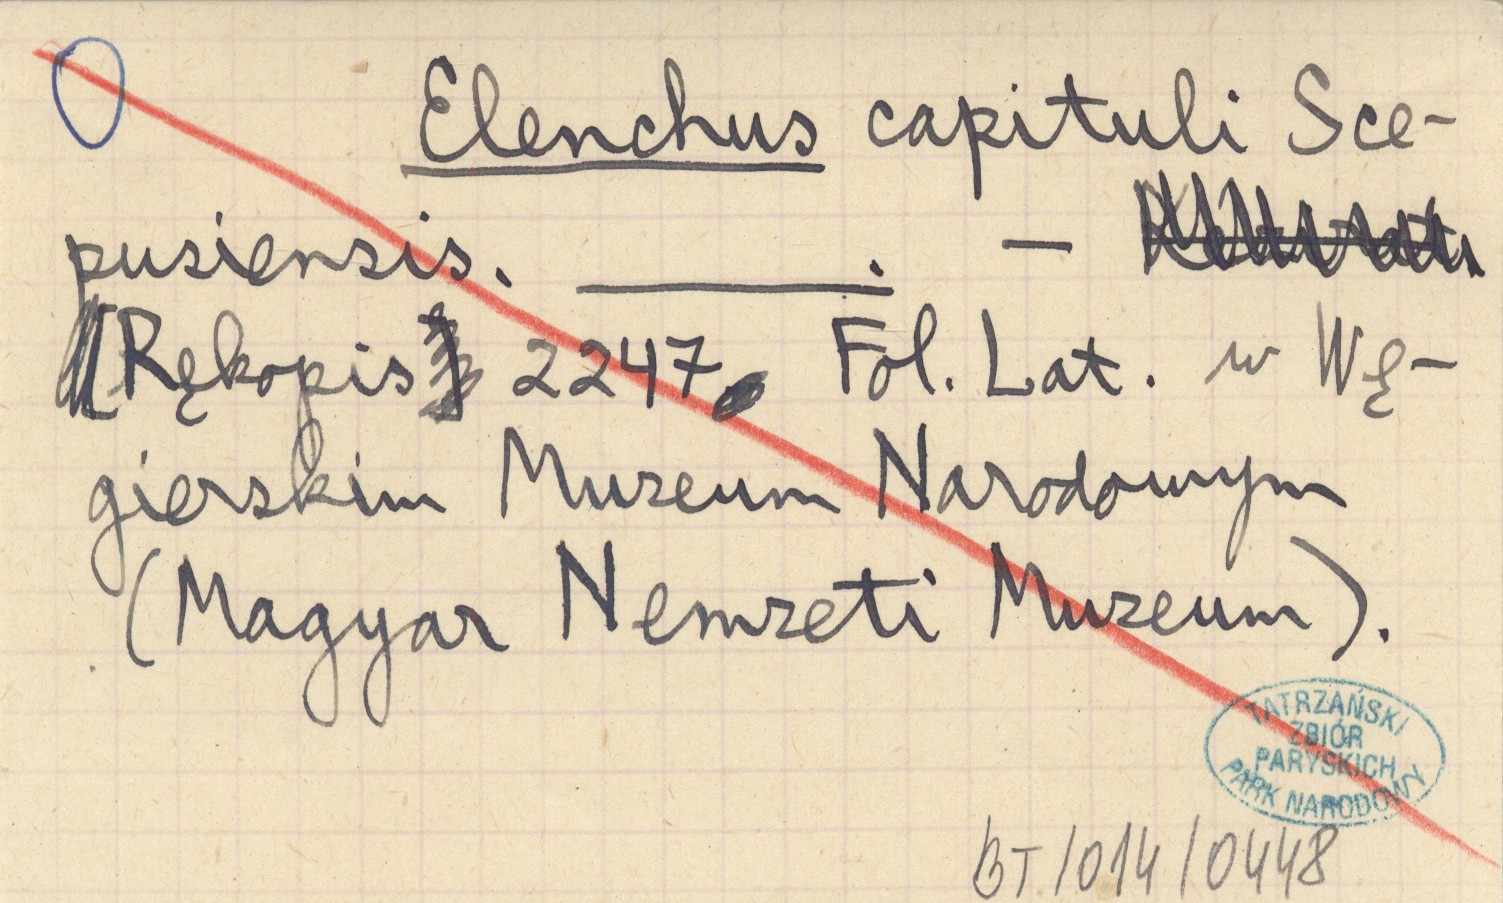 Elenchus capituli Sce-
pusiensis. ______. —
[Rękopis] 2247. Fol. Lat. w Wę-
gierskim Muzeum Narodowym
(Magyar Nemzeti Muzeum).
TATRZAŃSKI
ZBIÓR
PARYSKICH
PARK NARODOWY
BT/014/0448